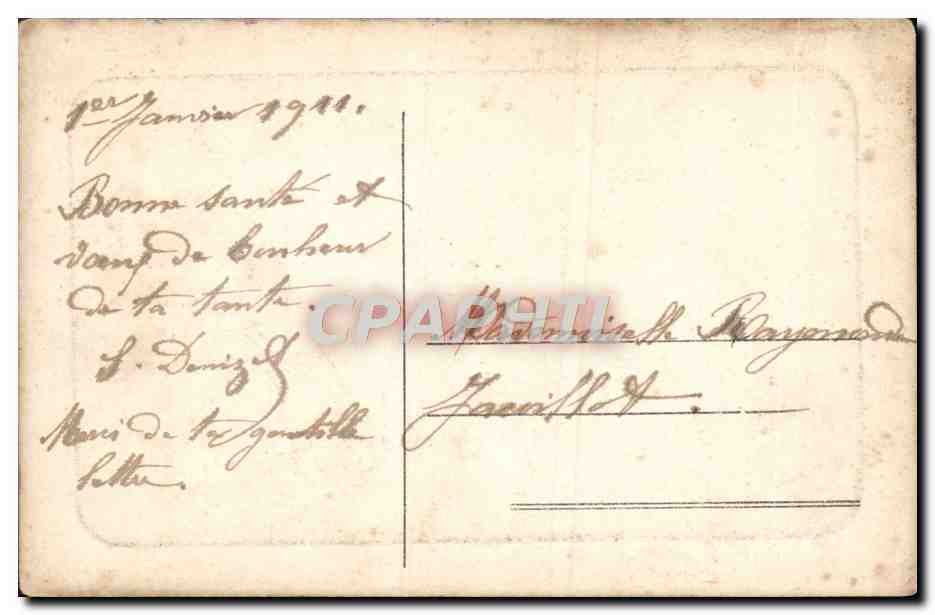 1er Janvier 1911.
Bonne santé et
vœux de bonheur
de ta tante.
S. Denizet
Merci de ta gentille
lettre.
CPAPHIL
Mademoiselle Raymonde
Javillot.